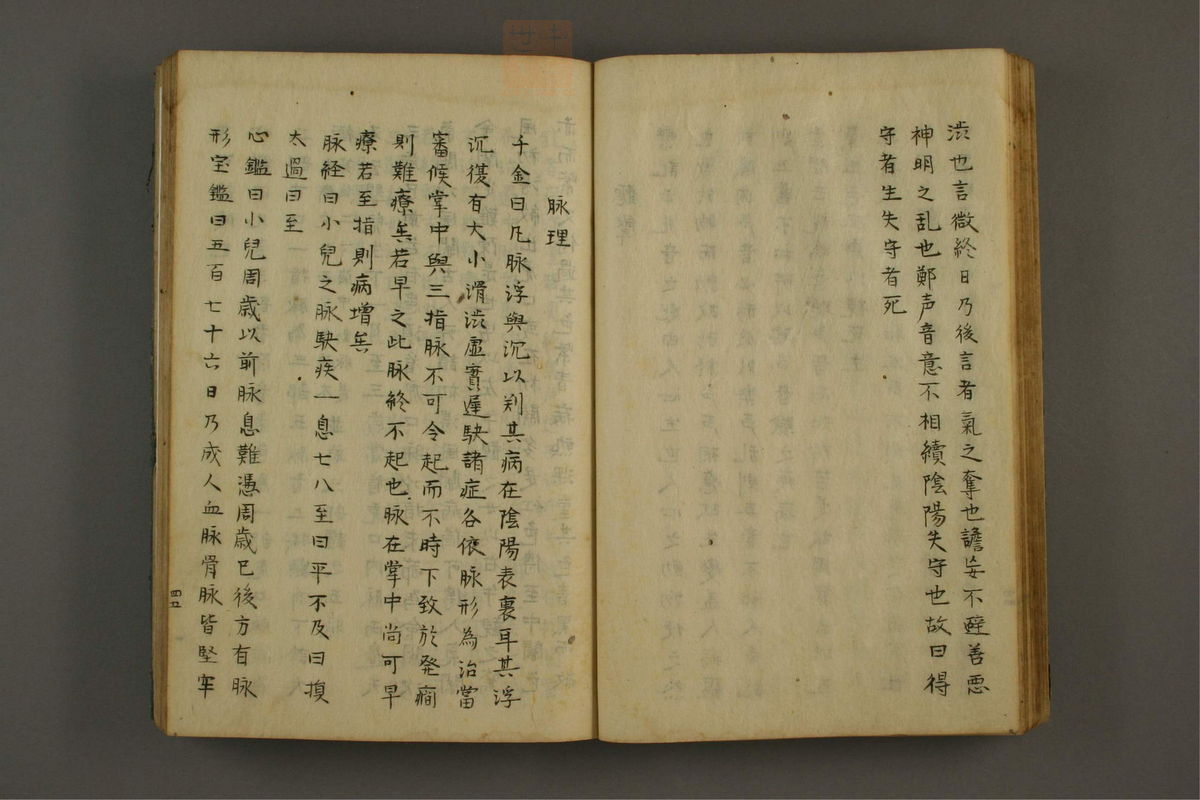 渋也言微終日乃後言者氣之奪也譫妄不避善悪
神明之乱也鄭声音意不相續陰陽失守也故曰得
守者生失守者死
脉理
千金曰凡脉浮與沉以判其病在陰陽表裏耳其浮
沉復有大小滑渋虚實遲駃諸症各依脉形為治當
審候掌中與三指脉不可令起而不時下致於発癇
則難療矣若早之此脉終不起也脉在掌中尚可早
療若至指則病增矣
脉経曰小兒之脉駃疾一息七八至曰平不及曰損
太過曰至
心鑑曰小兒周歳以前脉息難憑周歳已後方有脉
形宝鑑曰五百七十六日乃成人血脉骨脉皆堅牢